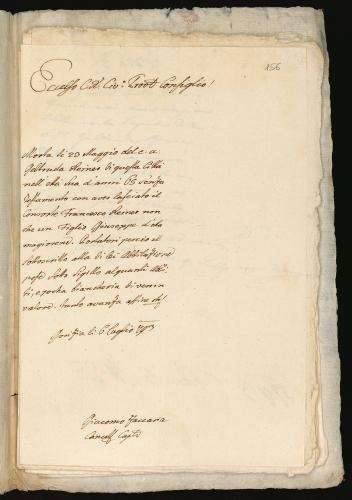 156
Eccelso Ces. Civ.o Prov.l Consiglio!
Morta li 20 Maggio del c. a.
Geltruda Steiner di questa Città
nell'età sua d'anni 65 senza
Testamento con aver lasciato il
Consorte Francesco Steiner non
che un Figlio Giuseppe d'età
maggiorenne. Portatosi perciò il
sottoscritto alla di Lei Abitazione
pose sotto Sigillo alquanti Abi-
ti, e pocha biancheria di verun
valore. Tanto avanza
Gorizia li 6 Luglio
Giacomo Zaccaria
Cancell.